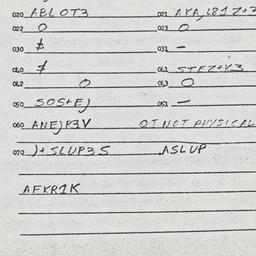 020 ABLOT3 021 AKA,L21Z+3
022 O 023 O
030 ‡ 031 —
040 ‡ 041 STFZ+K3
042 O 043 O
050 SOS+E) 051 —
060 ANE)P3V OT NOT PHYSICAL
070 )+SLUP3S ASLUP
AFKR1K